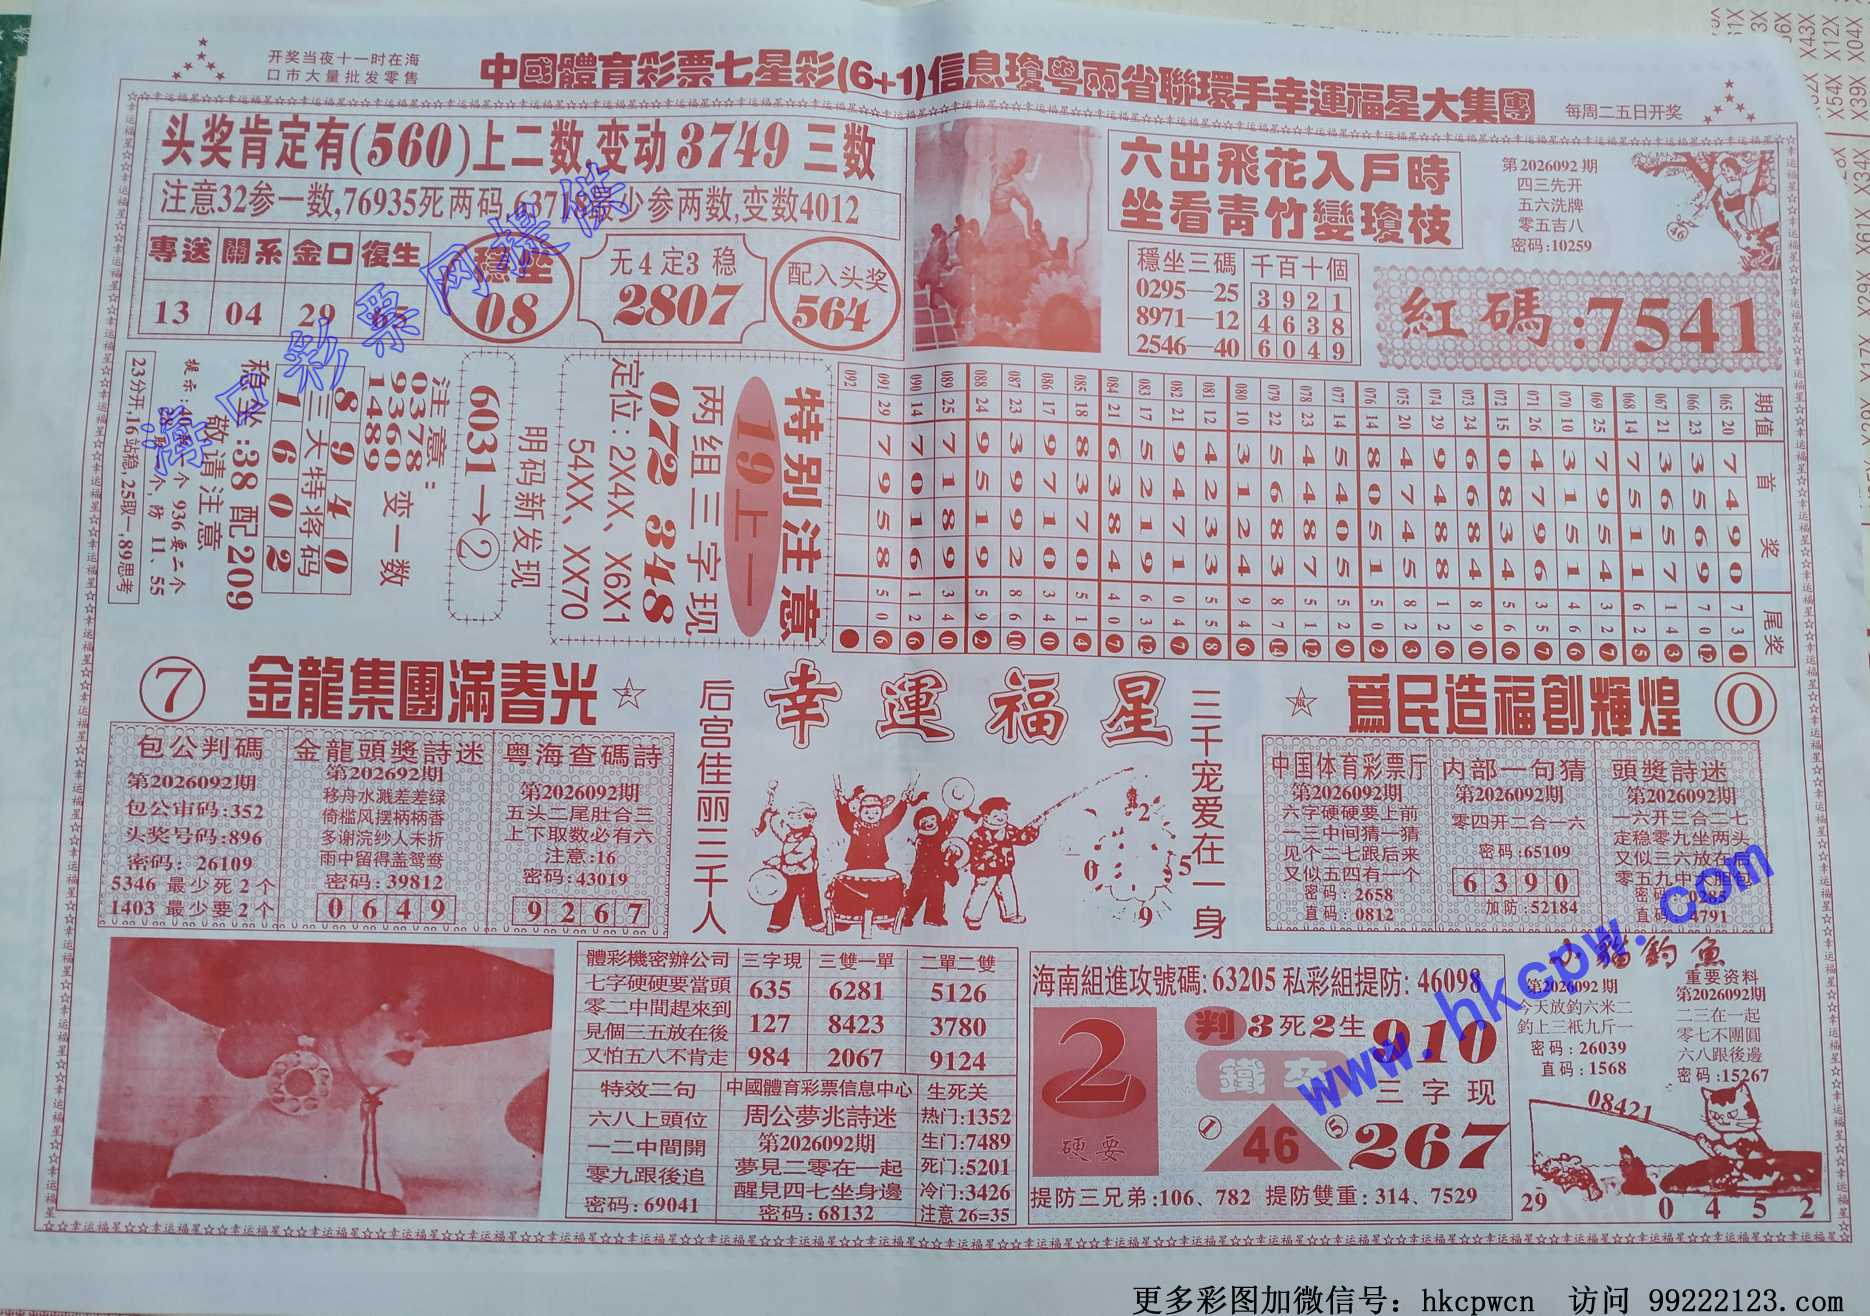 开奖当夜十一时在海
口市大量批发零售
中國體育彩票七星彩(6+1)信息瓊粤兩省聯環手幸運福星大集團
每周二五日开奖
头奖肯定有(560)上二数,变动3749三数
六出飛花入戶時
坐看青竹變瓊枝
第2026092期
四三先开
五六洗牌
零五吉八
密码:10259
46
專送 關系 金口 復生
13 04 29
穩坐
08
无4定3稳
2807
配入头奖
564
穩坐三碼
0295—25
8971—12
2546—40
千百十個
3 9 2 1
4 6 3 8
6 0 4 9
紅碼:7541
特别注意
19上一
两组三字现
072 348
定位:2X4X、X6X1
54XX、XX70
明码新发现
6031→②
注意:
0378
9360
1489
变一数
三天特将码
8 9 4 0
1 6 0 2
稳坐:38配209
敬请注意
23分开,16站稳,25取一,89思考
期值 首奖 尾奖
065 20 7 4 9 0 7 3 1
066 23 3 5 6 9 7 0 12
067 21 3 6 5 7 1 4 3
068 14 7 5 1 1 6 2 5
069 25 7 9 5 4 3 2 7
070 10 3 1 5 1 4 6 6
071 26 4 7 9 6 3 5 7
072 15 0 8 3 4 5 6 6
073 24 6 6 8 4 8 9 0
074 29 9 4 8 8 1 2 6
075 20 4 7 4 5 8 2 3
076 14 8 0 5 1 5 0 2
077 14 5 4 0 5 5 2 9
078 23 4 4 8 7 5 1 12
079 22 5 6 8 3 8 7 14
080 10 3 1 2 4 9 4 6
081 12 4 2 3 3 5 5 8
082 21 9 4 7 1 0 4 7
083 17 5 2 1 9 6 3 12
084 21 6 3 8 4 4 0 7
085 18 8 3 7 0 5 1 4
086 17 9 7 1 0 3 4 0
087 23 3 9 9 2 8 6 10
088 24 9 5 1 9 5 9 2
089 25 7 1 8 9 3 4 0
090 14 7 0 1 6 1 2 6
091 29 7 9 5 8 5 0 6
092
⑦
金龍集團滿春光
包公判碼
第2026092期
包公审码:352
头奖号码:896
密码: 26109
5346 最少死2个
1403 最少要2个
金龍頭獎詩迷
第202692期
移舟水溅差差绿
倚槛风摆柄柄香
多谢浣纱人未折
雨中留得盖鸳鸯
密码:39812
0 6 4 9
粵海查碼詩
第2026092期
五头二尾肚合三
上下取数必有六
注意:16
密码:43019
9 2 6 7
后宫佳丽三千人
幸運福星
三千宠爱在一身
2
0
5
9
爲民造福創輝煌
0
中国体育彩票厅
第2026092期
六字硬硬要上前
一三中间猜一猜
见个二七跟后来
又似五四有一个
密码:2658
直码:0812
内部一句猜
第2026092期
零四开二合一六
密码:65109
6 3 9 0
加防:52184
頭獎詩迷
第2026092期
一六开三合二七
定稳零九坐两头
又似三六放在后
零五九中大胆包
體彩機密辦公司
七字硬硬要當頭
零二中間趕來到
見個三五放在後
又怕五八不肯走
三字現 三雙一單 二單二雙
635 6281 5126
127 8423 3780
984 2067 9124
特效三句
六八上頭位
一二中間開
零九跟後追
密码:69041
中國體育彩票信息中心
周公夢兆詩迷
第2026092期
夢見二零在一起
醒見四七坐身邊
密码:68132
生死关
热门:1352
生门:7489
死门:5201
冷门:3426
注意26=35
海南組進攻號碼:63205 私彩組提防:46098
2
硬要
判3死2生 910
三字现
① 46 ⑤ 267
提防三兄弟:106、782 提防雙重:314、7529
第2026092期
今天放釣六米二
釣上三衹九斤一
密码:26039
直码:1568
重要资料
第2026092期
二三在一起
零七不團圓
六八跟後邊
密码:15267
08421
29
0 4 5 2
www.hkcpw.com
更多彩图加微信号: hkcpwcn 访问 99222123.com